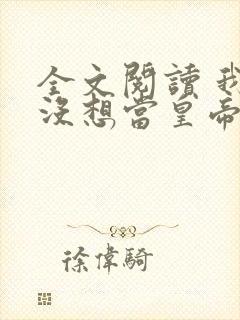 全文閱讀 我
沒想當皇帝
徐偉騎